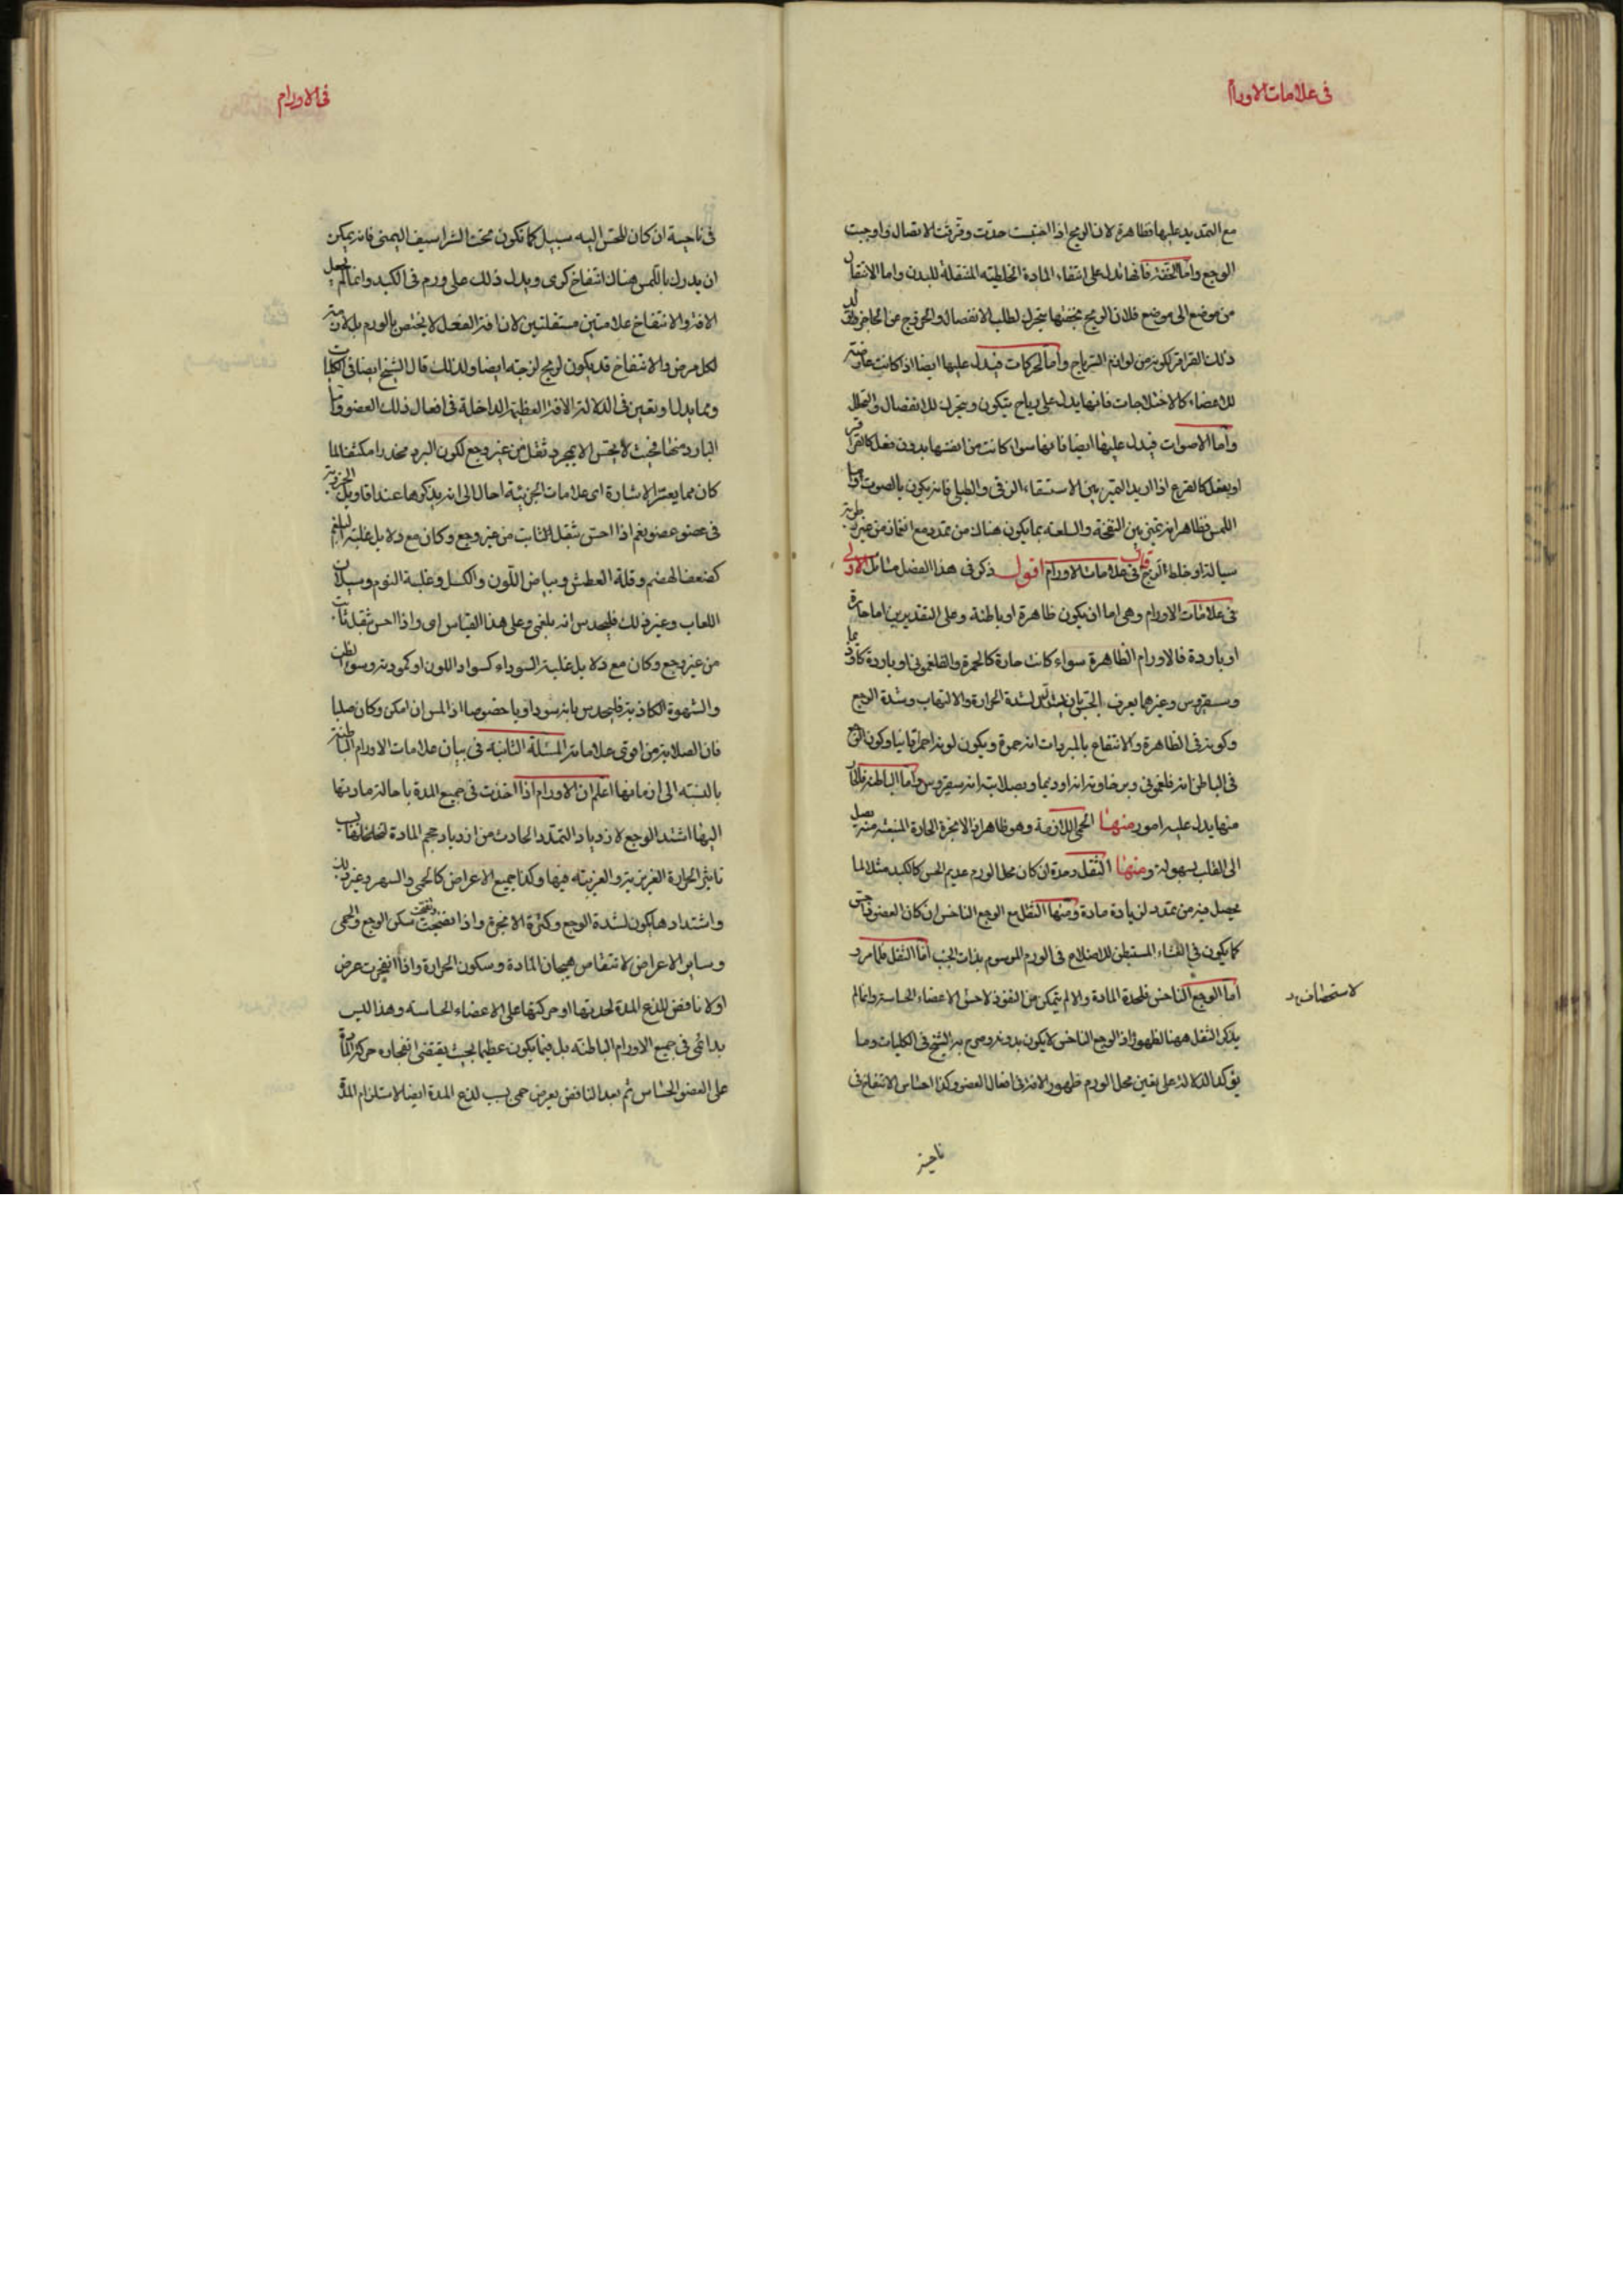 فى علامات الاورام
مع التمديد عليها فظاهرة لان الريح اذا احتبست حدّت وفرقت الاتصال واوجبت
الوجع واما الخفة فانها تدل على انتفاء المادة الخلطيته المثقلة للبدن واما الانتقال
من موضع الى موضع فلان الريح بخفتها يتحرك لطلب الانفصال والخروج عن
ذلك القراقر لكونه من لوازم الرياح واما الحركات فيدل عليها ايضا اذا كانت عارضة
للاعضاء كالاختلاجات فانها يدل على رياح يتكون ويتحرك للانفصال والتحلل
واما الاصوات فيدل عليها ايضا فانها سواء كانت من انفسها بدون فعل كالقراقر
او بفعل كالقرع اذا اريد التميز بين الاستسقاء الزقى والطبلى فانه يكون بالصوت واما
اللمس فظاهر انه يميز بين النفخة والسلعة بما يكون هناك من تمدد مع انغماز من غير رطوبة
سيالة او خلط لزج قال فى علامات الاورام اقول ذكر فى هذا الفصل مسائل الاولى
فى علامات الاورام وهى اما ان يكون ظاهرة او باطنة وعلى التقديرين اما حارة
او باردة فالاورام الظاهرة سواء كانت حارة كالحمرة والفلغمونى او باردة كاوذيما
وسقيروس وغيرهما يعرف بالحس لشدة الحرارة والالتهاب وشدة الوجع
وكونه فى الظاهرة والانتفاع بالمبردات انه حمرة ويكون لونه احمر قانيا وكون الوجع
فى الباطن انه فلغمونى وبرخاوته انه اوذيما وبصلابته انه سقيروس واما الباطنة فالحار
منها يدل عليه امور منها الحمى اللازمة وهو ظاهر لان الابخرة الحارة المنبعثة منه يصل
الى القلب بسهولة ومنها الثقل وحده ان كان محل الورم عديم الحس كالكبد مثلا لما
يحصل فيه من تمدد لزيادة مادة ومنها الثقل مع الوجع الناخس ان كان العضو ذا حس
كما يكون فى الغشاء المستبطن للاضلاع فى الورم الموسوم بذات الجنب اما الثقل فلما مر
اما الوجع الناخس فلحدة المادة والا لم يتمكن من النفوذ لاحس الاعضاء الحاسة وانما لم
يذكر الثقل ههنا لظهور ان الوجع الناخس لا يكون بدونه وصرح به الشيخ فى الكليات ومما
يؤكد الدلالة على تعين محل الورم ظهور الافة فى افعال العضو وكذا احساس الانتفاخ فى
ناحية
فى الاورام
فى ناحية ان كان للحس اليه سبيل كما تكون تحت الشراسيف اليمنى فانه يمكن
ان يدرك باللمس هناك انتفاخ كرى ويدل ذلك على ورم فى الكبد وانما لم يجعل
الافة والانتفاخ علامتين مستقلتين لان افة الفعل لا يختص بالورم بل لازمة
لكل مرض والانتفاخ قد يكون لريح لزجة ايضا ولذلك قال الشيخ ايضا فى الكليات
ومما يدل ويعين فى الدلالة الافة العظيمة الداخلة فى افعال ذلك العضو واما
البارد منها فبحيث لا يحس الا بمجرد ثقل من غير وجع لكون البرد مخدرا مكثفا لما
كان مما يعسر الاشارة الى علامات الجزئية احال الى انه يذكرها عند اقاويل الجزئية
فى عضو عضو نعم اذا احس بثقل الثابت من غير وجع وكان مع دلايل غلبة البلغم
كضعف الهضم وقلة العطش وبياض اللون والكسل وغلبة النوم وسيلان
اللعاب وغير ذلك فليحدس انه بلغمى وعلى هذا القياس اى واذا احس بثقل ثابت
من غير وجع وكان مع دلايل غلبة السوداء كسواد اللون او كمودته وسوء الظن
والشهوة الكاذبة فليحدس بانه سوداويا خصوصا اذا لمس ان امكن وكان صلبا
فان الصلابة من اقوى علاماته المسئلة الثانية فى بيان علامات الاورام الباطنة
بالنسبة الى ازمانها اعلم ان الاورام اذا اخذت فى جميع المدة باحالة مادتها
اليها اشتد الوجع لازدياد التمدد الحادث من ازدياد حجم المادة لتخلخلها
تاثير الحرارة الغريزية والغريبة فيها وكذا جميع الاعراض كالحمى والسهر وغير ذلك
واشتدادها يكون لشدة الوجع وكثرة الابخرة واذا نضجت سكن الوجع والحمى
وساير الاعراض لانتقاص هيجان المادة وسكون الحرارة واذا انفجرت عرض
اولا نافض للذع المدة لحدتها او حركتها على الاعضاء الحاسة وهذا ليس
بدائمى فى جميع الاورام الباطنة بل فيما يكون عظيما بحيث يقتضى انفجاره حركة المادة
على العضو الحساس ثم بعد النافض يعرض حمى بسبب لذع المدة ايضا لاستلزام